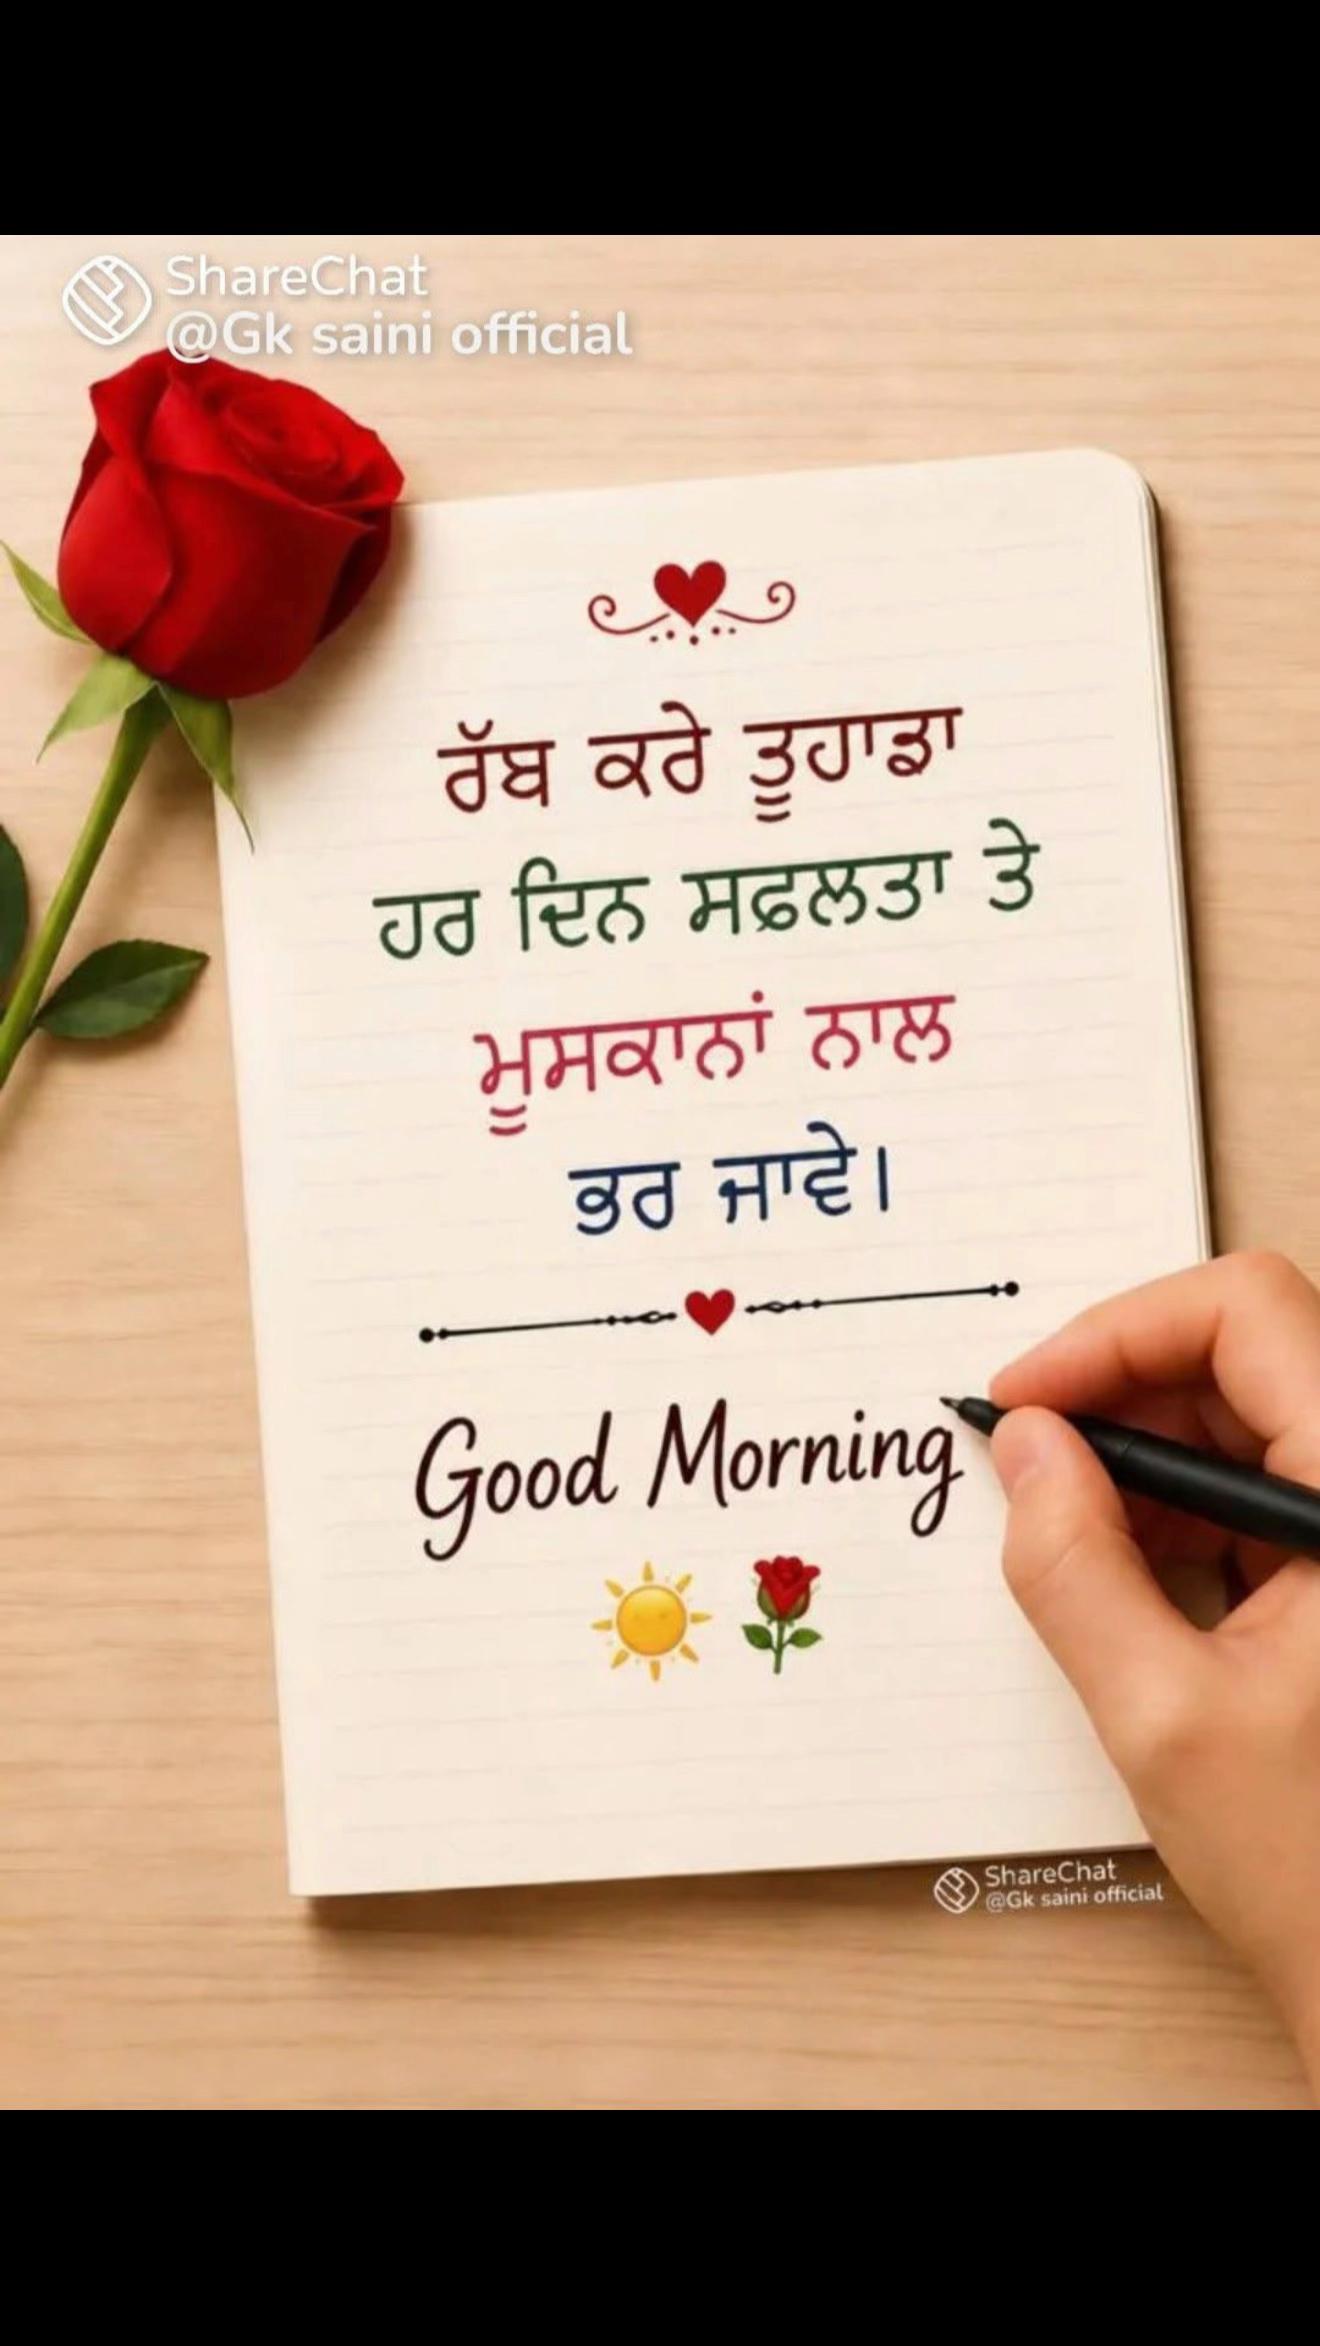 ShareChat
@Gk saini official
ਰੱਬ ਕਰੇ ਤੂਹਾਡਾ
ਹਰ ਦਿਨ ਸਫ਼ਲਤਾ ਤੇ
ਮੂਸਕਾਨਾਂ ਨਾਲ
ਭਰ ਜਾਵੇ।
Good Morning
ShareChat
@Gk saini official